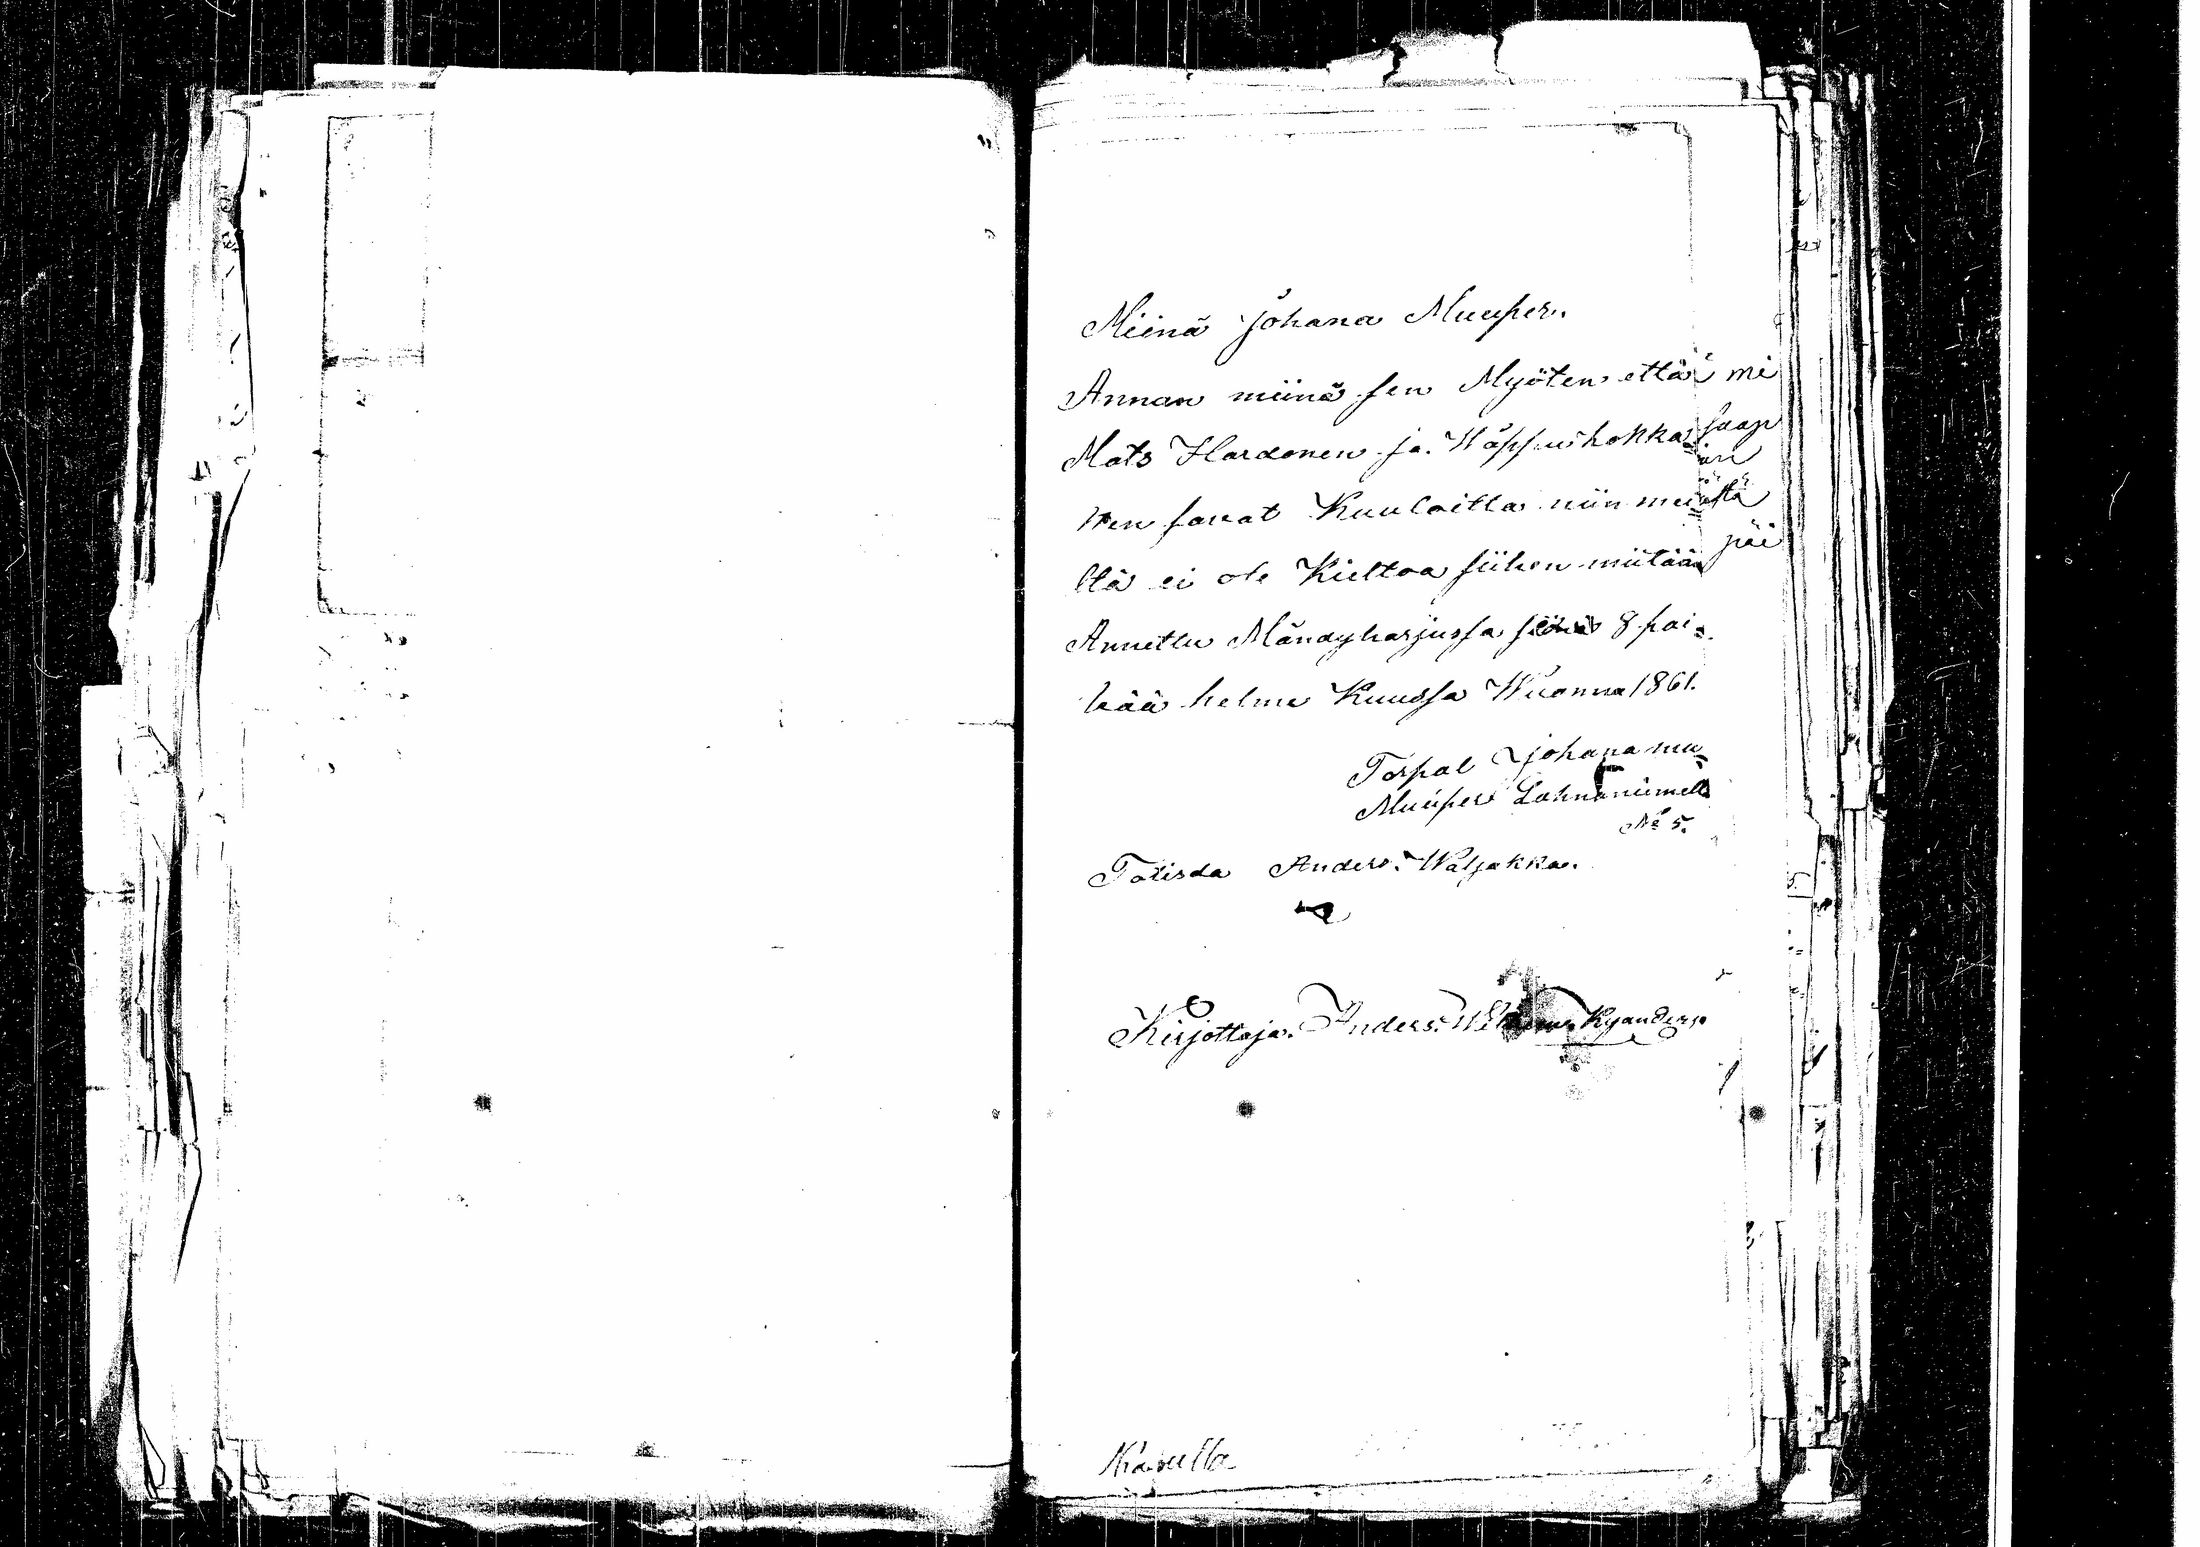 Miinä Johana Muuper.
Annan miinä sen Myöten että
Mats Hardonen ja Wappu hokka
nen savat Kuulaitta niin meiä
ltä ei ole Kieltoa siihen miitään
Annettu Mändyharjussa 8 pai=
vää helme Kuussa Wuonna 1861.
Torpal Johana mu=
Muuper Lahnaniimell
No 5.
Totisda Anders. Waljakka.
Kirjottaja. Anders. Kyander
mi
saap